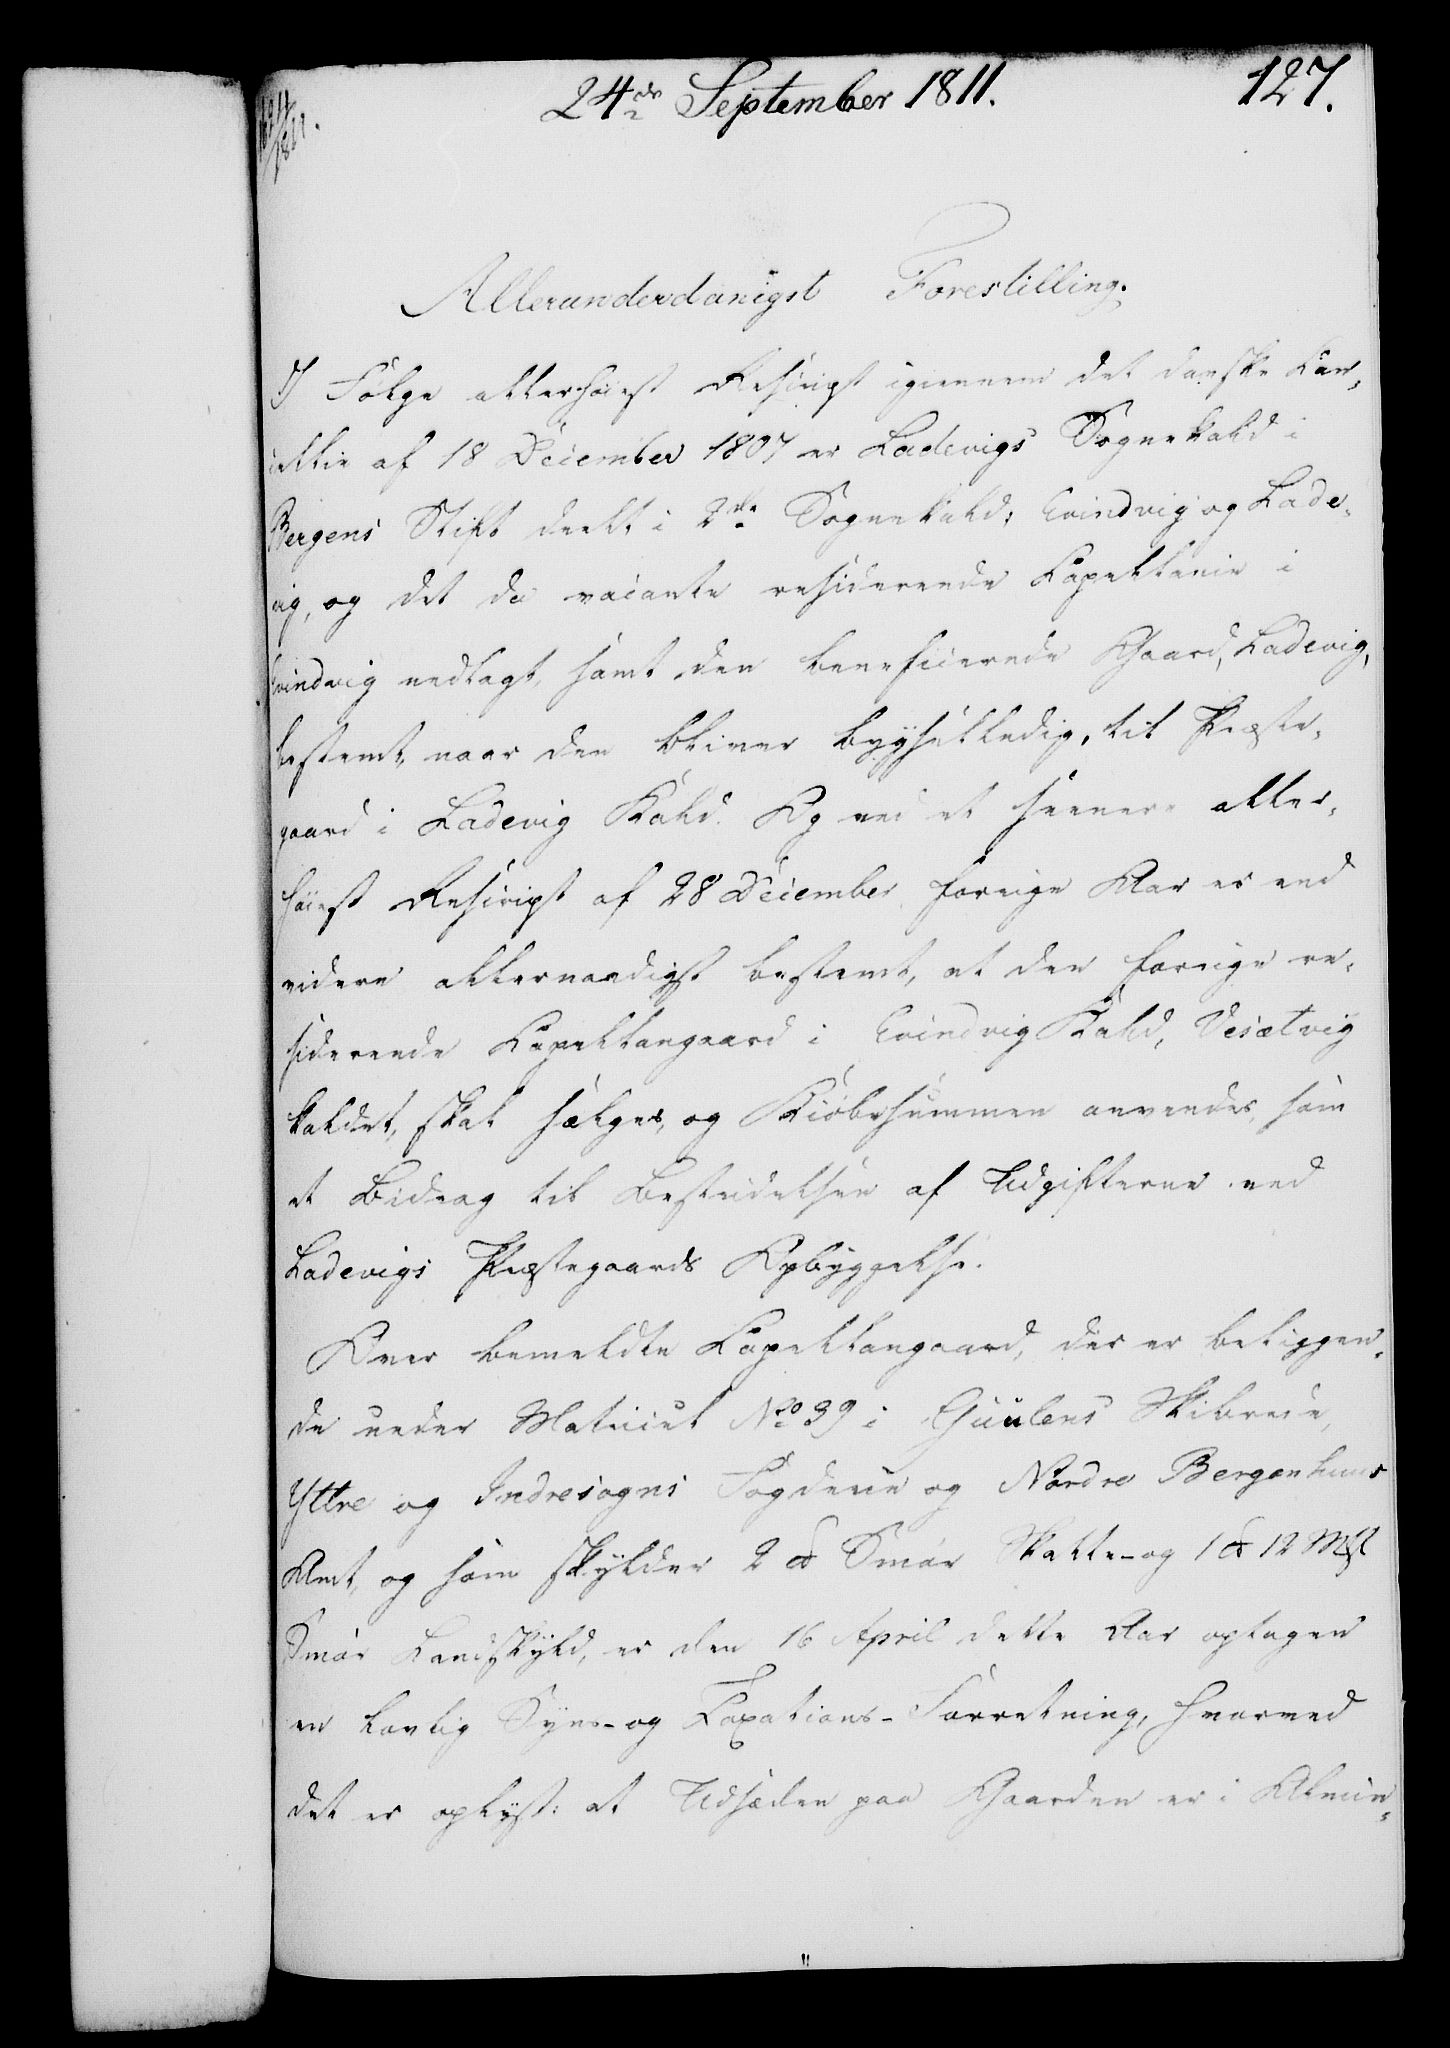 24de September 1811.
127.
Allerunderdanigst Forestilling.
I Følge allerhøiest Rescript igiennem det danske Can¬
cellie af 18 December 1807 er Ladevigs Sognekald i
Bergens Stift deelt i 2de Sognekald: Evindvig og Lade¬
vig, og det da vacante residerende Capellanie i
Evindvig nedlagt, samt den beneficerede Gaard, Ladevig,
bestemt, naar den bliver bygselledig, til Præste¬
gaard i Ladevig Kald. Og ved et seenere aller¬
høiest Rescript af 28 December forrige Aar er end
videre allernaadigst bestemt, at den forrige re¬
siderende Capellangaard i Evindvig Kald, Vesætvig
kaldet, skal sælges, og Kiøbesummen anvendes, som
et Bidrag til Bestridelsen af Udgifterne ved
Ladevigs Præstegaards Opbyggelse.
Over bemeldte Capellangaard, der er beliggen¬
de under Matricul No 39 i Guulens Skibrede,
Yttre og Indresogns Fogderie og Nordre Bergenhuus
Amt, og som skylder 2 ℔ Smør Skatte- og 1 ℔ 12 Mk
Smør Landskyld, er den 16 April dette Aar optagen
en lovlig Syns- og Taxations-Forretning, hvorved
det er oplyst: at Udsæden paa Gaarden er i Almin¬